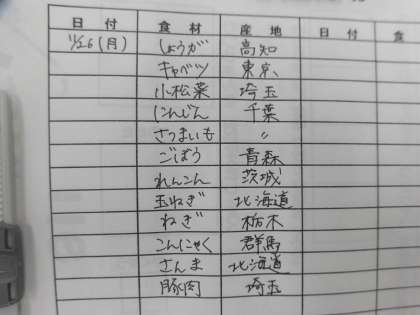 日付 食材 産地 日付 食
11/26(月) しょうが 高知
キャベツ 東京
小松菜 埼玉
にんじん 千葉
さつまいも 〃
ごぼう 青森
れんこん 茨城
玉ねぎ 北海道
ねぎ 栃木
こんにゃく 群馬
さんま 北海道
豚肉 埼玉